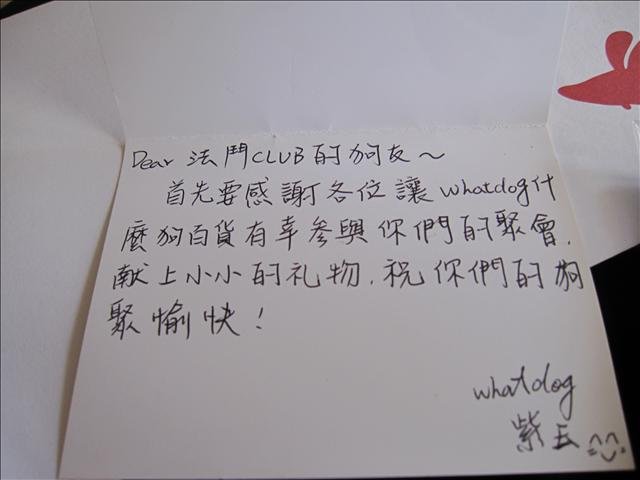 Dear 法鬥CLUB的狗友～
首先要感謝各位讓whatdog什
麼狗百貨有幸參與你們的聚會,
献上小小的礼物,祝你們的狗
聚愉快!
whatdog
紫玉